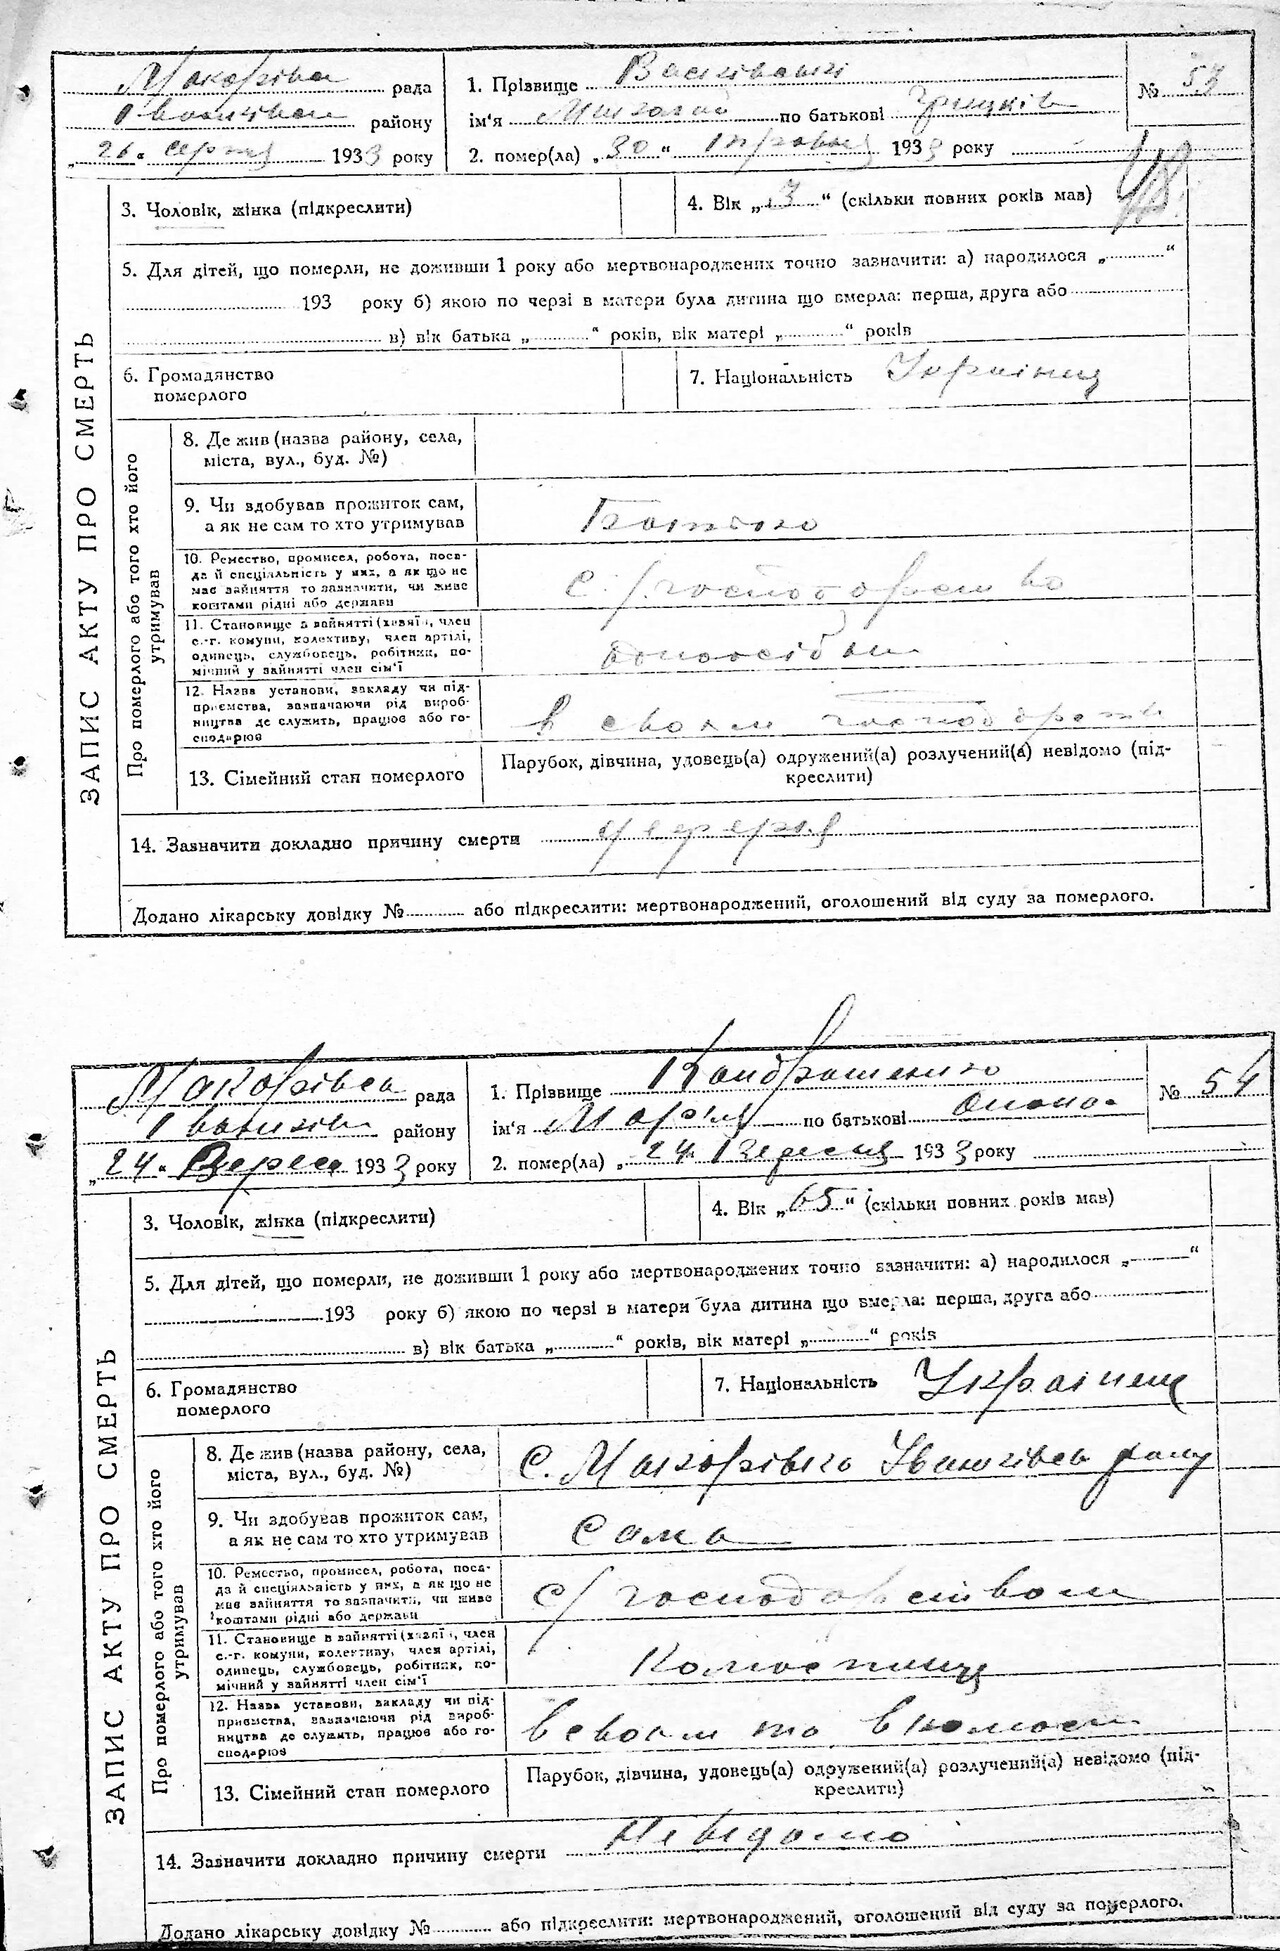 Макорівська рада
Іванківськ району
„26“ серпня 1933 року
1. Прізвище
ім'я Миколай по батькові Грицьків
2. помер(ла) „30“ 1933 року
№ 53
3. Чоловік, жінка (підкреслити)
4. Вік „13“ (скільки повних років мав)
5. Для дітей, що померли, не доживши 1 року або мертвонароджених точно зазначити: а) народилося „ “
193 року б) якою по черзі в матери була дитина що вмерла: перша, друга або
в) вік батька „ “ років, вік матері „ “ років
6. Громадянство
померлого
7. Національність Українец
ЗАПИС АКТУ ПРО СМЕРТЬ
Про померлого або того хто його
утримував
8. Де жив (назва району, села,
міста, вул., буд. №)
9. Чи здобував прожиток сам,
а як не сам то хто утримував
Батько
10. Ремество, промисел, робота, поса-
да й спеціяльність у них, а як що не
має зайняття то зазначити, чи живе
коштами рідні або держави
С/господарство
11. Становище в зайнятті (хазяїн, член
с.-г. комуни, колективу, член артілі,
одинець, службовець, робітник, по-
мічний у зайнятті член сім'ї
одноосібник
12. Назва установи, закладу чи під-
приємства, зазначаючи рід вироб-
ництва де служить, працює або го-
сподарює
в своєм господарстві
13. Сімейний стан померлого
Парубок, дівчина, удовець(а) одружений(а) розлучений(а) невідомо (під-
креслити)
14. Зазначити докладно причину смерти
Додано лікарську довідку № або підкреслити: мертвонароджений, оголошений від суду за померлого.
Макорівськ рада
Іванків району
„24“ Верес 1933 року
1. Прізвище Кондратенко
ім'я Марія по батькові
2. помер(ла) „24“ Вересня 1933 року
№ 54
3. Чоловік, жінка (підкреслити)
4. Вік „65“ (скільки повних років мав)
5. Для дітей, що померли, не доживши 1 року або мертвонароджених точно зазначити: а) народилося „ “
193 року б) якою по черзі в матери була дитина що вмерла: перша, друга або
в) вік батька „ “ років, вік матері „ “ років
6. Громадянство
померлого
7. Національність Українец
ЗАПИС АКТУ ПРО СМЕРТЬ
Про померлого або того хто його
утримував
8. Де жив (назва району, села,
міста, вул., буд. №)
С. Макорівка Іванківськ району
9. Чи здобував прожиток сам,
а як не сам то хто утримував
Сама
10. Ремество, промисел, робота, поса-
да й спеціяльність у них, а як що не
має зайняття то зазначити, чи живе
коштами рідні або держави
с/господарством
11. Становище в зайнятті (хазяїн, член
с.-г. комуни, колективу, член артілі,
одинець, службовець, робітник, по-
мічний у зайнятті член сім'ї
Колгоспниця
12. Назва установи, закладу чи під-
приємства, зазначаючи рід вироб-
ництва де служить, працює або го-
сподарює
в своєм та в колгоспі
13. Сімейний стан померлого
Парубок, дівчина, удовець(а) одружений(а) розлучений(а) невідомо (під-
креслити)
14. Зазначити докладно причину смерти Невідомо
Додано лікарську довідку № або підкреслити: мертвонароджений, оголошений від суду за померлого.